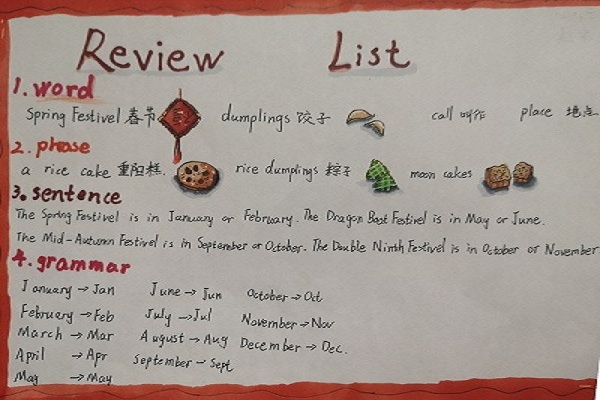 Review List
1. word
Spring Festivel 春节 dumplings 饺子 call 叫作 place 地点
2. phrase
a rice cake 重阳糕. rice dumplings 粽子 moon cakes
3. sentence
The Spring Festivel is in January or February. The Dragon Boat Festivel is in May or June.
The Mid-Autumn Festivel is in September or October. The Double Ninth Festivel is in October or November
4. grammar
January → Jan June → Jun October → Oct
February → Feb July → Jul November → Nov
March → Mar August → Aug December → Dec.
April → Apr September → Sept
May → May